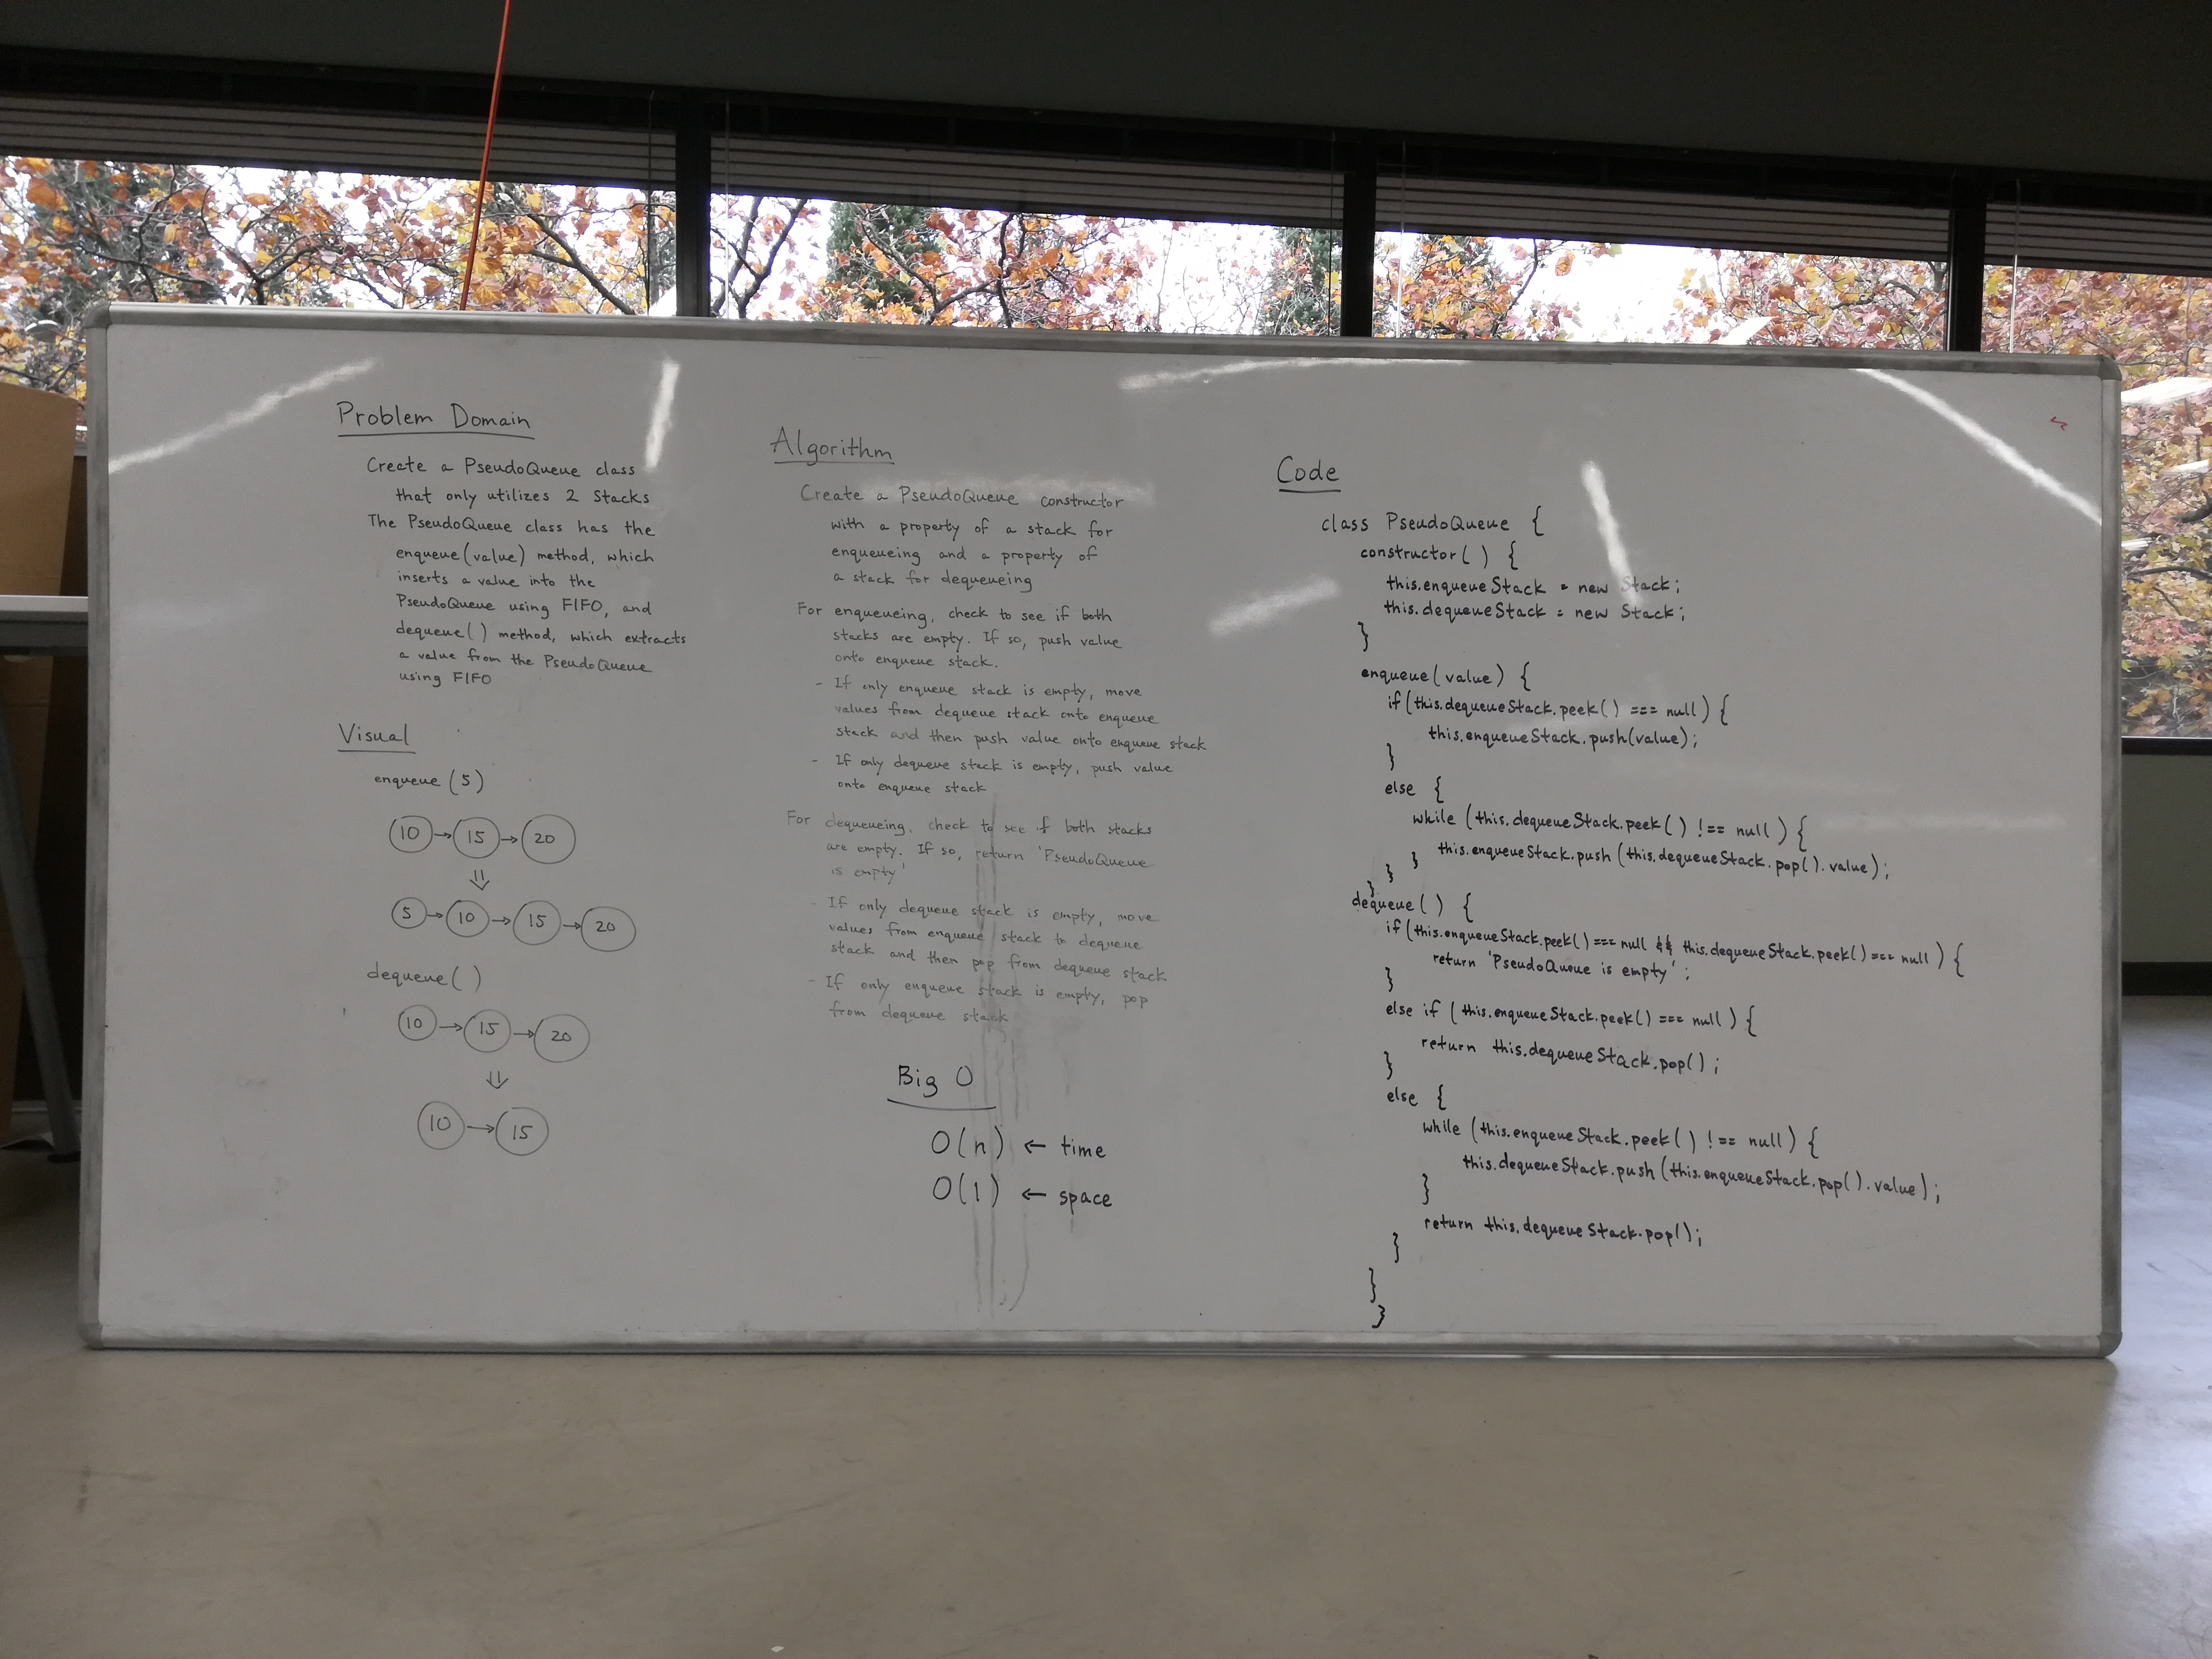 Problem Domain
Create a PseudoQueue class
that only utilizes 2 Stacks
The PseudoQueue class has the
enqueue(value) method, which
inserts a value into the
PseudoQueue using FIFO, and
dequeue() method, which extracts
a value from the PseudoQueue
using FIFO
Visual
enqueue (5)
10 → 15 → 20
⇓
5 → 10 → 15 → 20
dequeue()
10 → 15 → 20
⇓
10 → 15
Algorithm
Create a PseudoQueue constructor
with a property of a stack for
enqueueing and a property of
a stack for dequeueing
For enqueueing, check to see if both
stacks are empty. If so, push value
onto enqueue stack.
- If only enqueue stack is empty, move
values from dequeue stack onto enqueue
stack and then push value onto enqueue stack
- If only dequeue stack is empty, push value
onto enqueue stack
For dequeueing, check to see if both stacks
are empty. If so, return 'PseudoQueue
is empty'
- If only dequeue stack is empty, move
values from enqueue stack to dequeue
stack and then pop from dequeue stack
- If only enqueue stack is empty, pop
from dequeue stack
Big O
O(n) ← time
O(1) ← space
Code
class PseudoQueue {
constructor() {
this.enqueueStack = new Stack;
this.dequeueStack = new Stack;
}
enqueue(value) {
if (this.dequeueStack.peek() === null) {
this.enqueueStack.push(value);
}
else {
while (this.dequeueStack.peek() !== null) {
this.enqueueStack.push(this.dequeueStack.pop().value);
}
}
}
dequeue() {
if (this.enqueueStack.peek() === null && this.dequeueStack.peek() === null) {
return 'PseudoQueue is empty';
}
else if (this.enqueueStack.peek() === null) {
return this.dequeueStack.pop();
}
else {
while (this.enqueueStack.peek() !== null) {
this.dequeueStack.push(this.enqueueStack.pop().value);
}
return this.dequeueStack.pop();
}
}
}